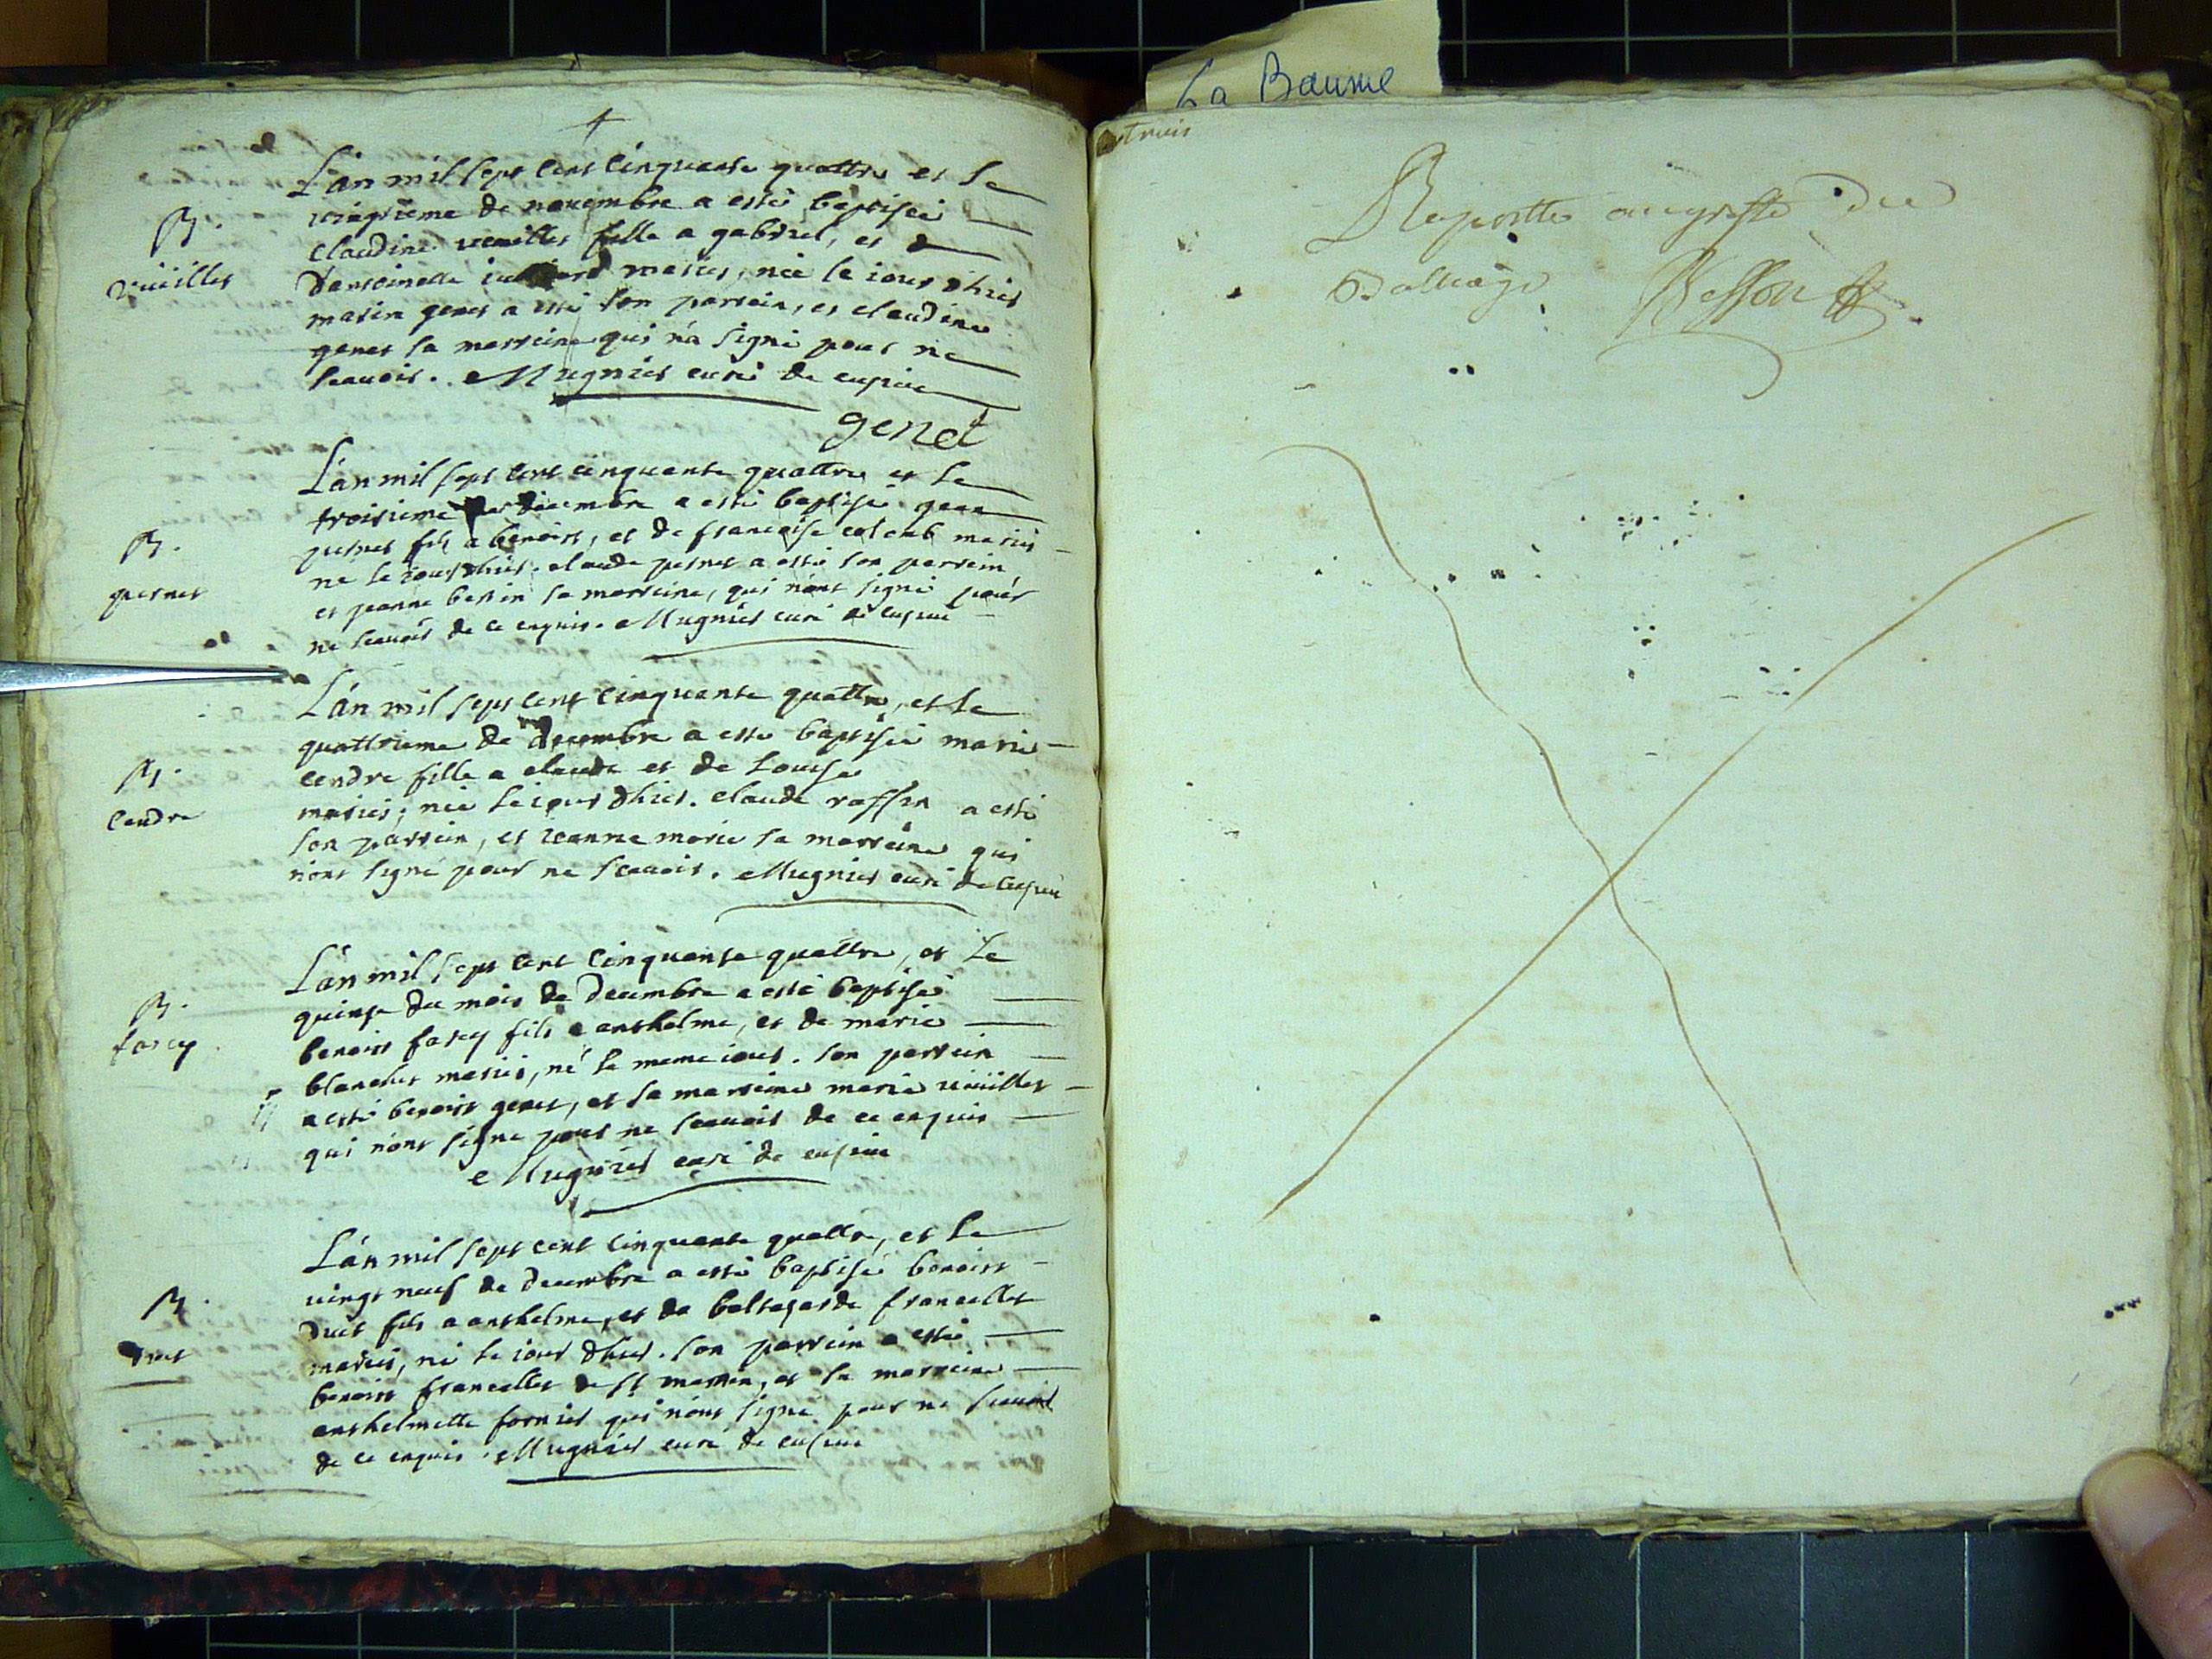 L'an mil sept cent cinquante quattre et le
vingtieme de novembre a esté baptisée
B.
claudine vuiillet fille a gabriel, et
vuiillet
d'antoinette mariés, née le iour d'hier
marin genet a esté son parrein, et claudine
genet sa marreine qui n'a signé pour ne
scauoir. Mugnier curé de cuzieu
genet
L'an mil sept cent cinquante quattre et le
troisieme decembre a esté baptisé jean
B.
pernet fils a benoist, et de francoise colomb mariés
pernet
né le iour d'hier. claude pernet a esté son parrein
et jeanne bertin sa marreine, qui n'ont signé pour
ne scauoir de ce enquis. Mugnier curé de cuzieu
L'an mil sept cent cinquante quattre, et le
quattrieme de decembre a esté baptisée marie
B.
cendre fille a claude et de Louise
cendre
mariés; née le iour d'hier. claude raffin a esté
son parrein, et jeanne marie sa marreine qui
n'ont signé pour ne scauoir. Mugnier curé de cuzieu
L'an mil sept cent cinquante quattre, et le
quinze du mois de decembre a esté baptisé
B.
benoist farcy fils a anthelme, et de marie
farcy
blanchet mariés, né le meme iour. son parrein
a esté benoist genet, et sa marreine marie vuiillet
qui n'ont signé pour ne scauoir de ce enquis
Mugnier curé de cuzieu
L'an mil sept cent cinquante quattre, et le
vingt neuf de decembre a esté baptisé benoist
B.
fils a anthelme, et de baltazarde francillet
mariés, né le iour d'hier. son parrein a esté
benoist francillet de st martin, et sa marreine
anthelmette fornier qui n'ont signé pour ne scauoir
de ce enquis. Mugnier curé de cuzieu
La Baume
Raportté au greffe du
Balliage Besson